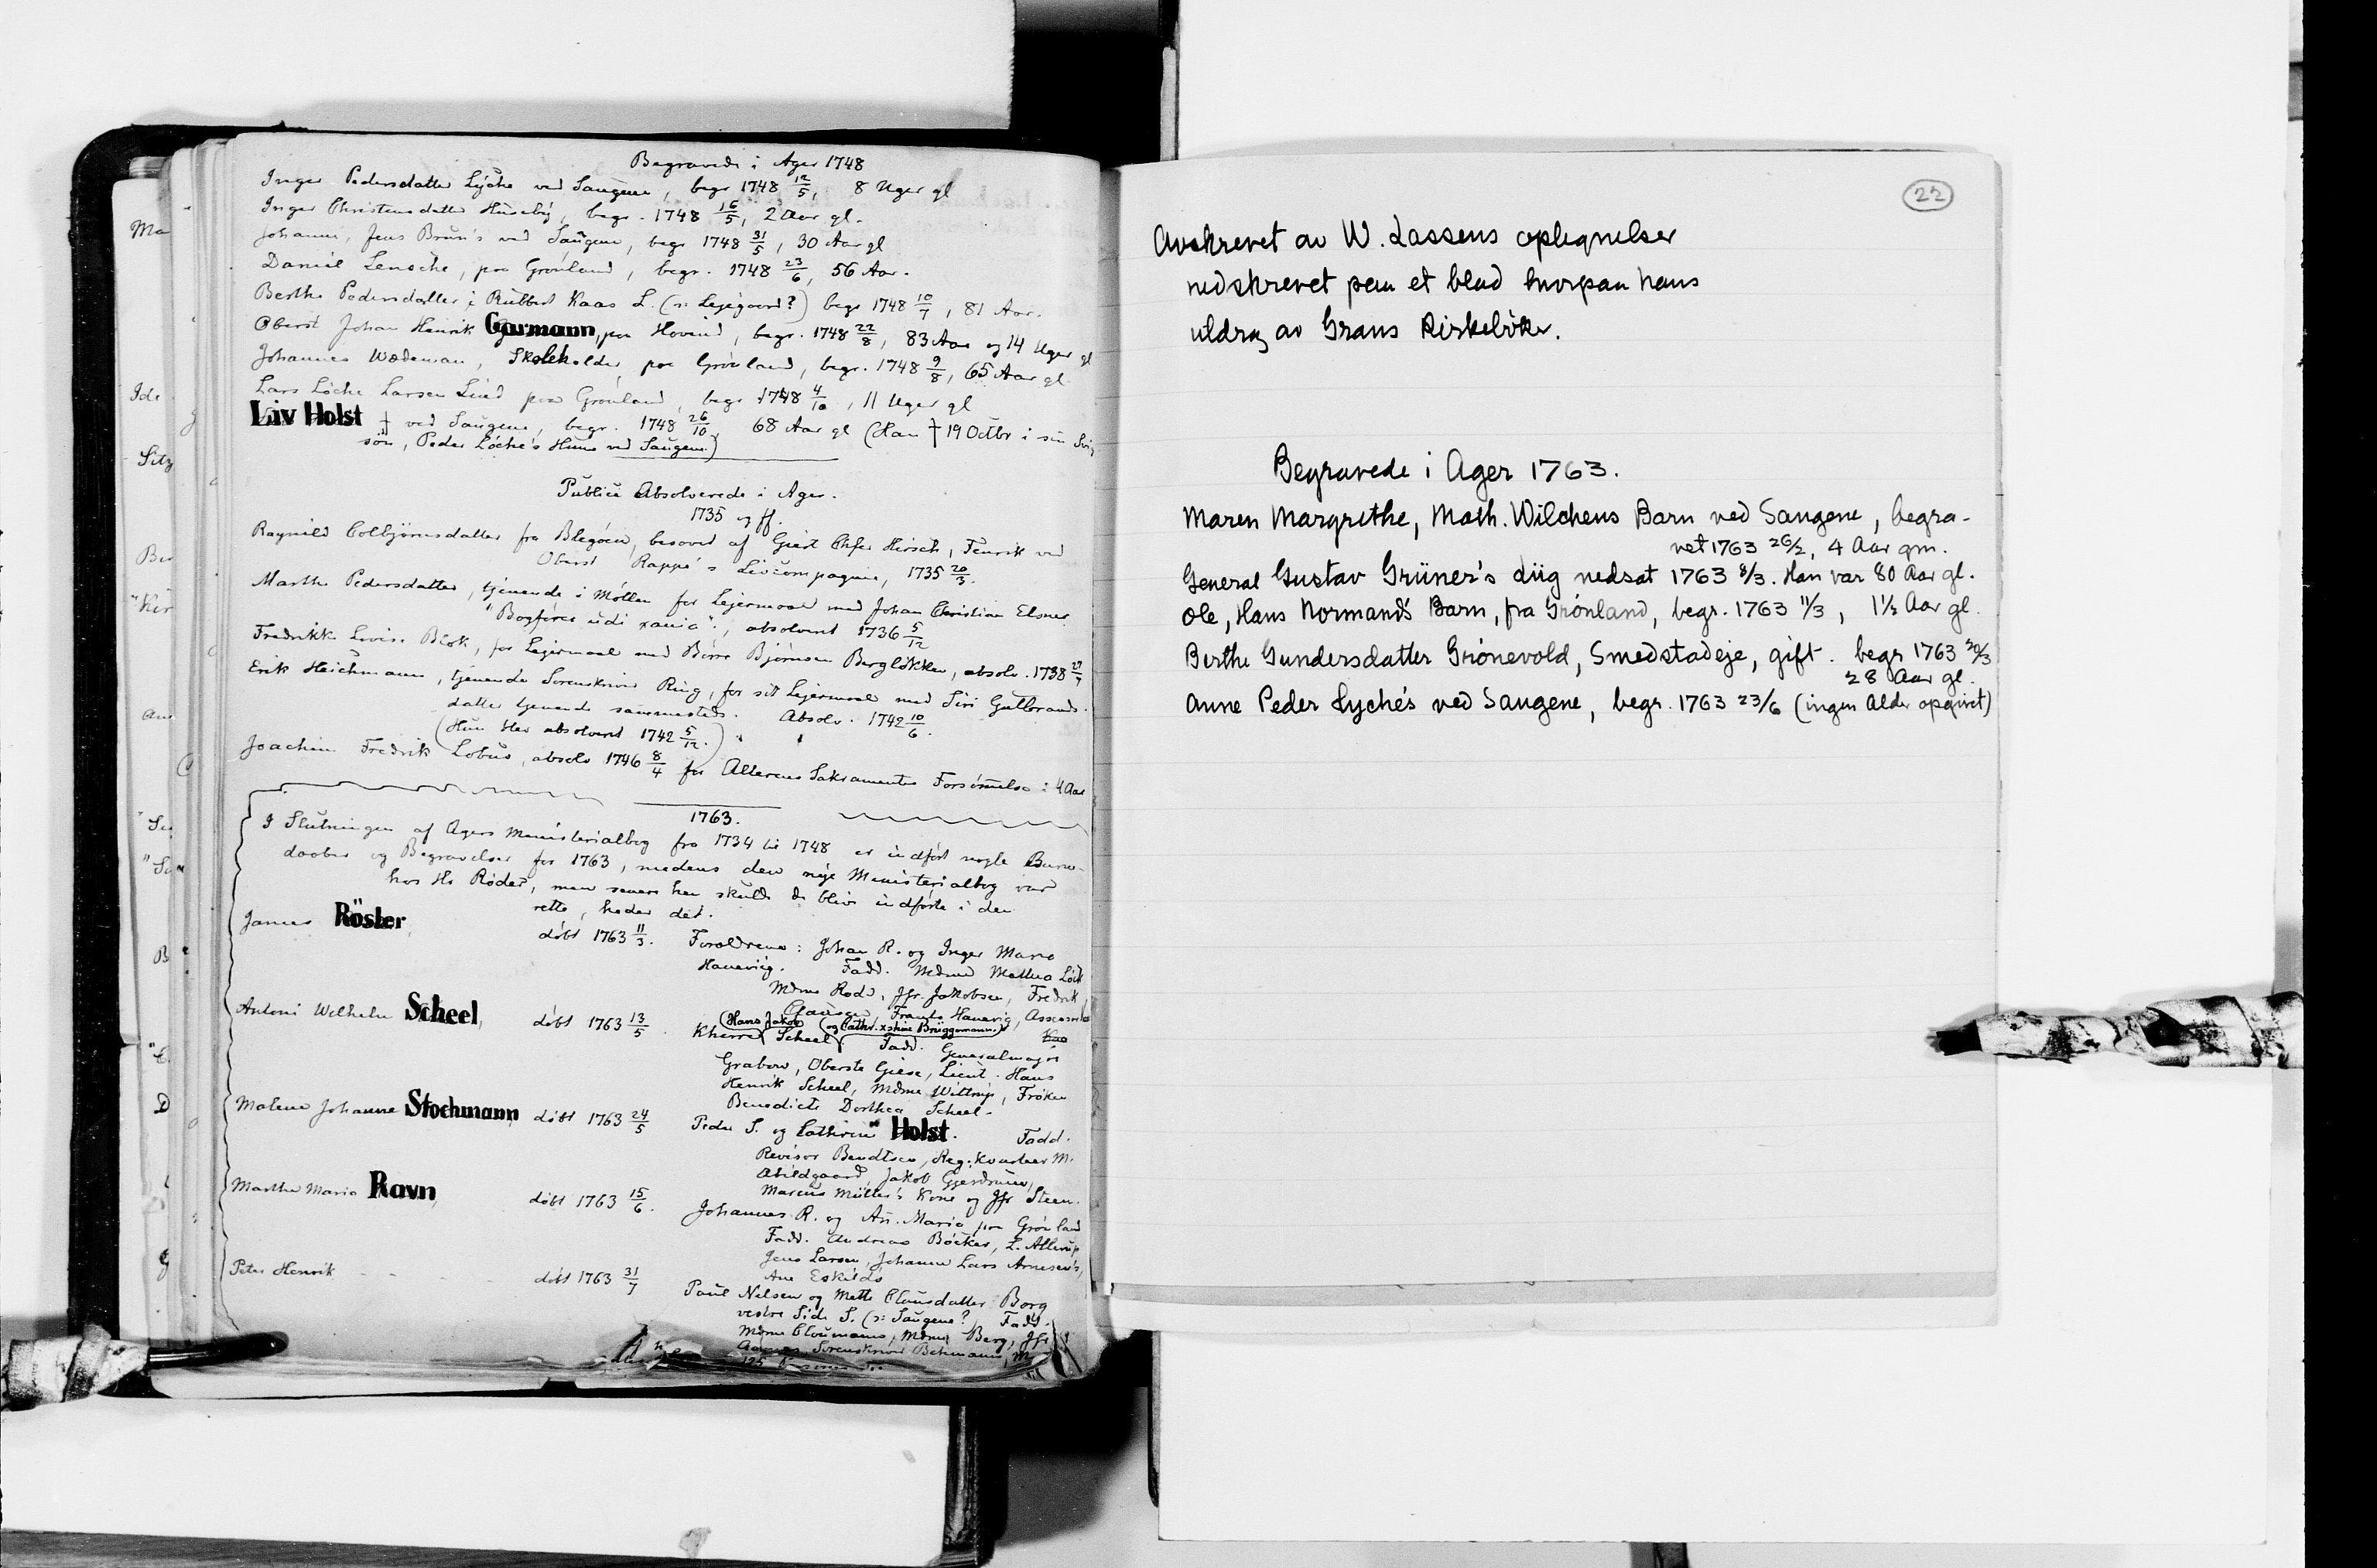 Begravede i Ager 1748
Inger Pedersdatter Lÿche ved Saugene, begr 1748 12/5, 8 Uger gl
Inger Christensdatter Huseby, begr. 1748 16/5, 2 Aar gl.
Johanne, Jens Brun's ved Saugene, begr 1748 31/5, 30 Aar gl
Daniel Lensche, paa Grønland, begr. 1748 23/6, 56 Aar.
Berthe Pedersdatter i Rubbert Kaas L. (ɔ: Lejegaard?) begr 1748 10/7, 81 Aar.
Oberst Johan Henrik Garmann, paa Hovind, begr. 1748 22/8, 83 Aar og 14 Uger gl
Johannes Wedeman, Skoleholder, paa Grønland, begr. 1748 9/8, 65 Aar gl.
Lars Löche Larsen Lind paa Grønland, begr 1748 4/10, 11 Uger gl
Liv Holst ved Saugene, begr. 1748 26/10, 68 Aar gl (Han † 19 Octbr i sin Svi
søn, Peder Löche's Huus ved Saugene.)
Publice Absolverede i Ager.
1735 og ff.
Ragnild Colbjørnsdatter fra Blegøen, besovet af Giert Chfer Hirsch, Fenrik ved
Oberst Rappe's Livcompagnie, 1735 20/3.
Marthe Pedersdatter, tjenende i Møllen for Lejermaal med Johan Christian Elsner
"Bogfører udi xania"., absolvert 1736 5/12
Fredrikke Lovise Blok, for Lejermaal med Børre Bjørnsen Bergløkken, absolv. 1738
Erik Heichmann, tjenende Sorenskriver Ring, for sit Lejermaal med Siri Gulbrands-
datter tjenende sammesteds. Absolv. 1742 10/6.
(Hun blev absolvert 1742 5/12.)
Joachim Fredrik Lobus, absolv 1746 8/4 for Alterens Sakramentes Forsømmelse i 4 Aar
1763.
I Slutningen af Agers Ministerialbog fra 1734 til 1748 er indført nogle Barne-
daaber og Begravelser for 1763, medens den nye Ministerialbog var
hos Hr Røder, men senere hen skulde de blive indførte i den
rette, heder det.
James Röster, døbt 1763 11/3. Forældrene: Johan R. og Inger Marie
Hanevig. Fadd. Mdme Mathea Löch
Mdme Rode, Jfr. Jakobsen, Fredrik
Clausen, Frants Hanevig, Assessor
Antoni Wilhelm Scheel, døbt 1763 13/5. Kherre (Hans Jakob) Scheel (og Cathr. xstine Brüggemann.) Fadd. Generalmajor
Grabow, Oberste Giese, Lieut. Hans
Henrik Scheel, Mdme Wittrup, Frøken
Benedicte Dorthea Scheel.
Malene Johanne Stochmann døbt 1763 24/5 Peder S. og Cathrine Holst. Fadd.
Revisor Bendtsen, Reg: Kvarteer M.
Abildgaard, Jakob Gjerdrum,
Marcus Müller's Kone og Jfr Steen.
Marthe Marie Ravn, døbt 1763 15/6. Johannes R. og An. Marie paa Grønland
Fadd. Andreas Böcker, L. Allerup
Jens Larsen, Johanne Lars Arnesen's,
Ane Eskilds
Peter Henrik døbt 1763 31/7 Paul Nilsen og Mette Clausdatter Borg
vestre Side S. (ɔ: Saugene?) Fadd.
Mdme Cloumann, Mdme Berg, Jfr
Sorenskriver Behmann, M
22
Avskrevet av W. Lassens optegnelser
nedskrevet paa et blad hvorpaa hans
uldrag av Grans Kirkebøker.
Begravede i Ager 1763.
Maren Margrethe, Math. Wilchens Barn ved Saugene, begra-
vet 1763 26/2, 4 Aar gm.
General Gustav Grüner's Liig nedsat 1763 8/3. Han var 80 Aar gl.
Ole, Hans Normand's Barn, fra Grønland, begr. 1763 11/3, 1½ Aar gl.
Berthe Gundersdatter Grönevold, Smedstadeje, gift. begr 1763 20/3
28 Aar gl.
Anne Peder Lyche's ved Saugene, begr. 1763 23/6 (ingen Alder opgivet)